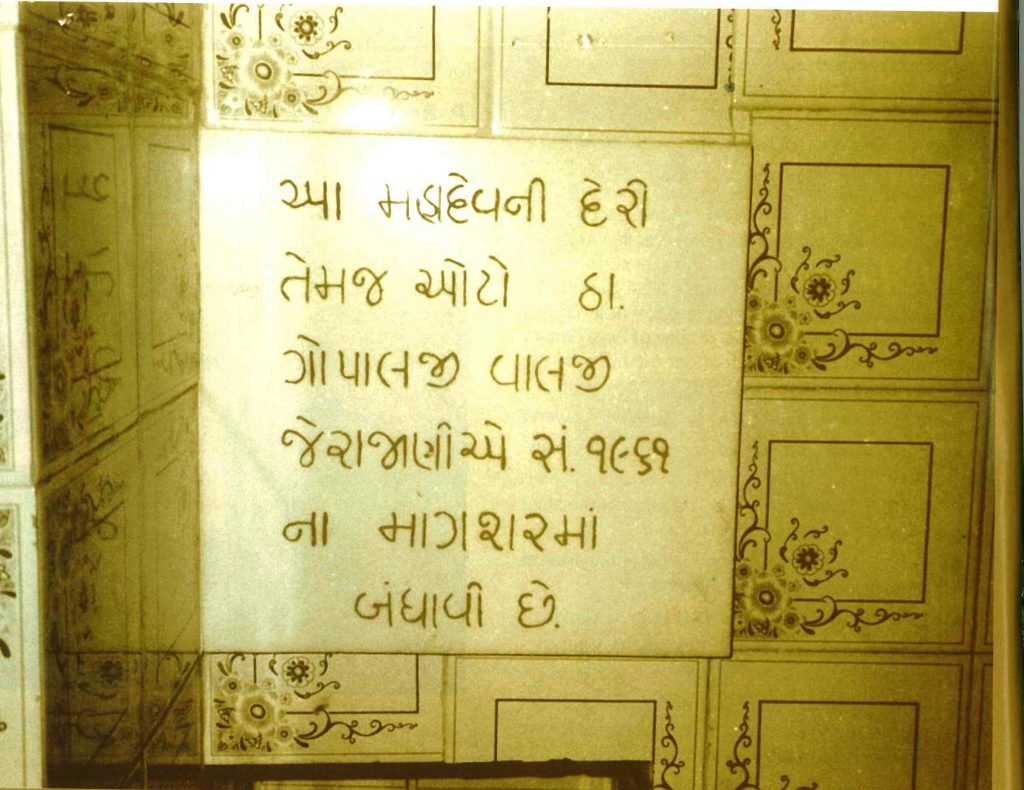 આ મહાદેવની દેરી
તેમજ ઓટો ઠા.
ગોપાલજી વાલજી
જેરાજાણીએ સં. ૧૯૬૧
ના માગશરમાં
બંધાવી છે.